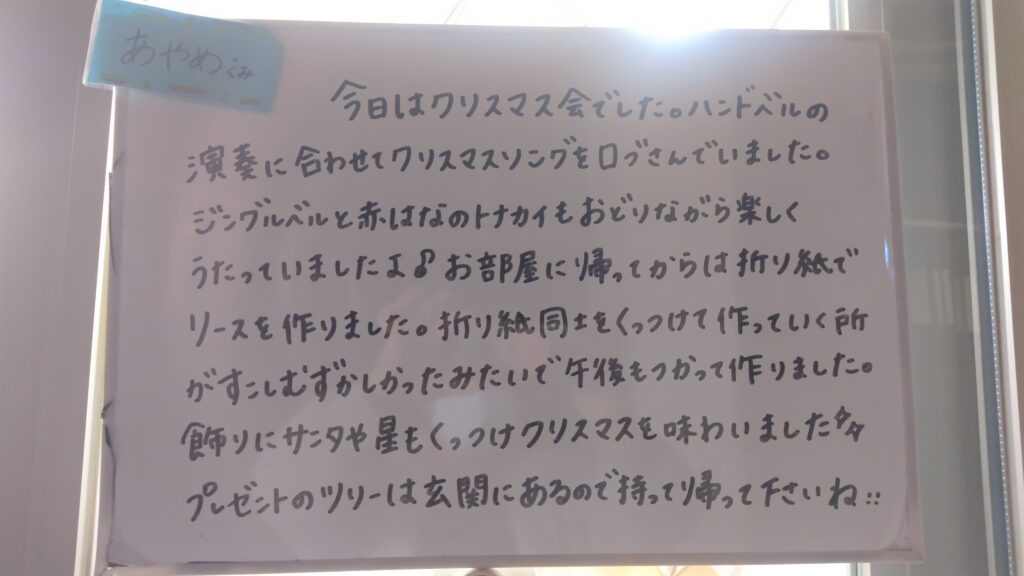 あやめぐみ
今日はクリスマス会でした。ハンドベルの
演奏に合わせてクリスマスソングを口ずさんでいました。
ジングルベルと赤はなのトナカイもおどりながら楽しく
うたっていましたよ♪お部屋に帰ってからは折り紙で
リースを作りました。折り紙同士をくっつけて作っていく所
がすこしむずかしかったみたいで午後もつかって作りました。
飾りにサンタや星もくっつけクリスマスを味わいました☆☆
プレゼントのツリーは玄関にあるので持って帰って下さいね::